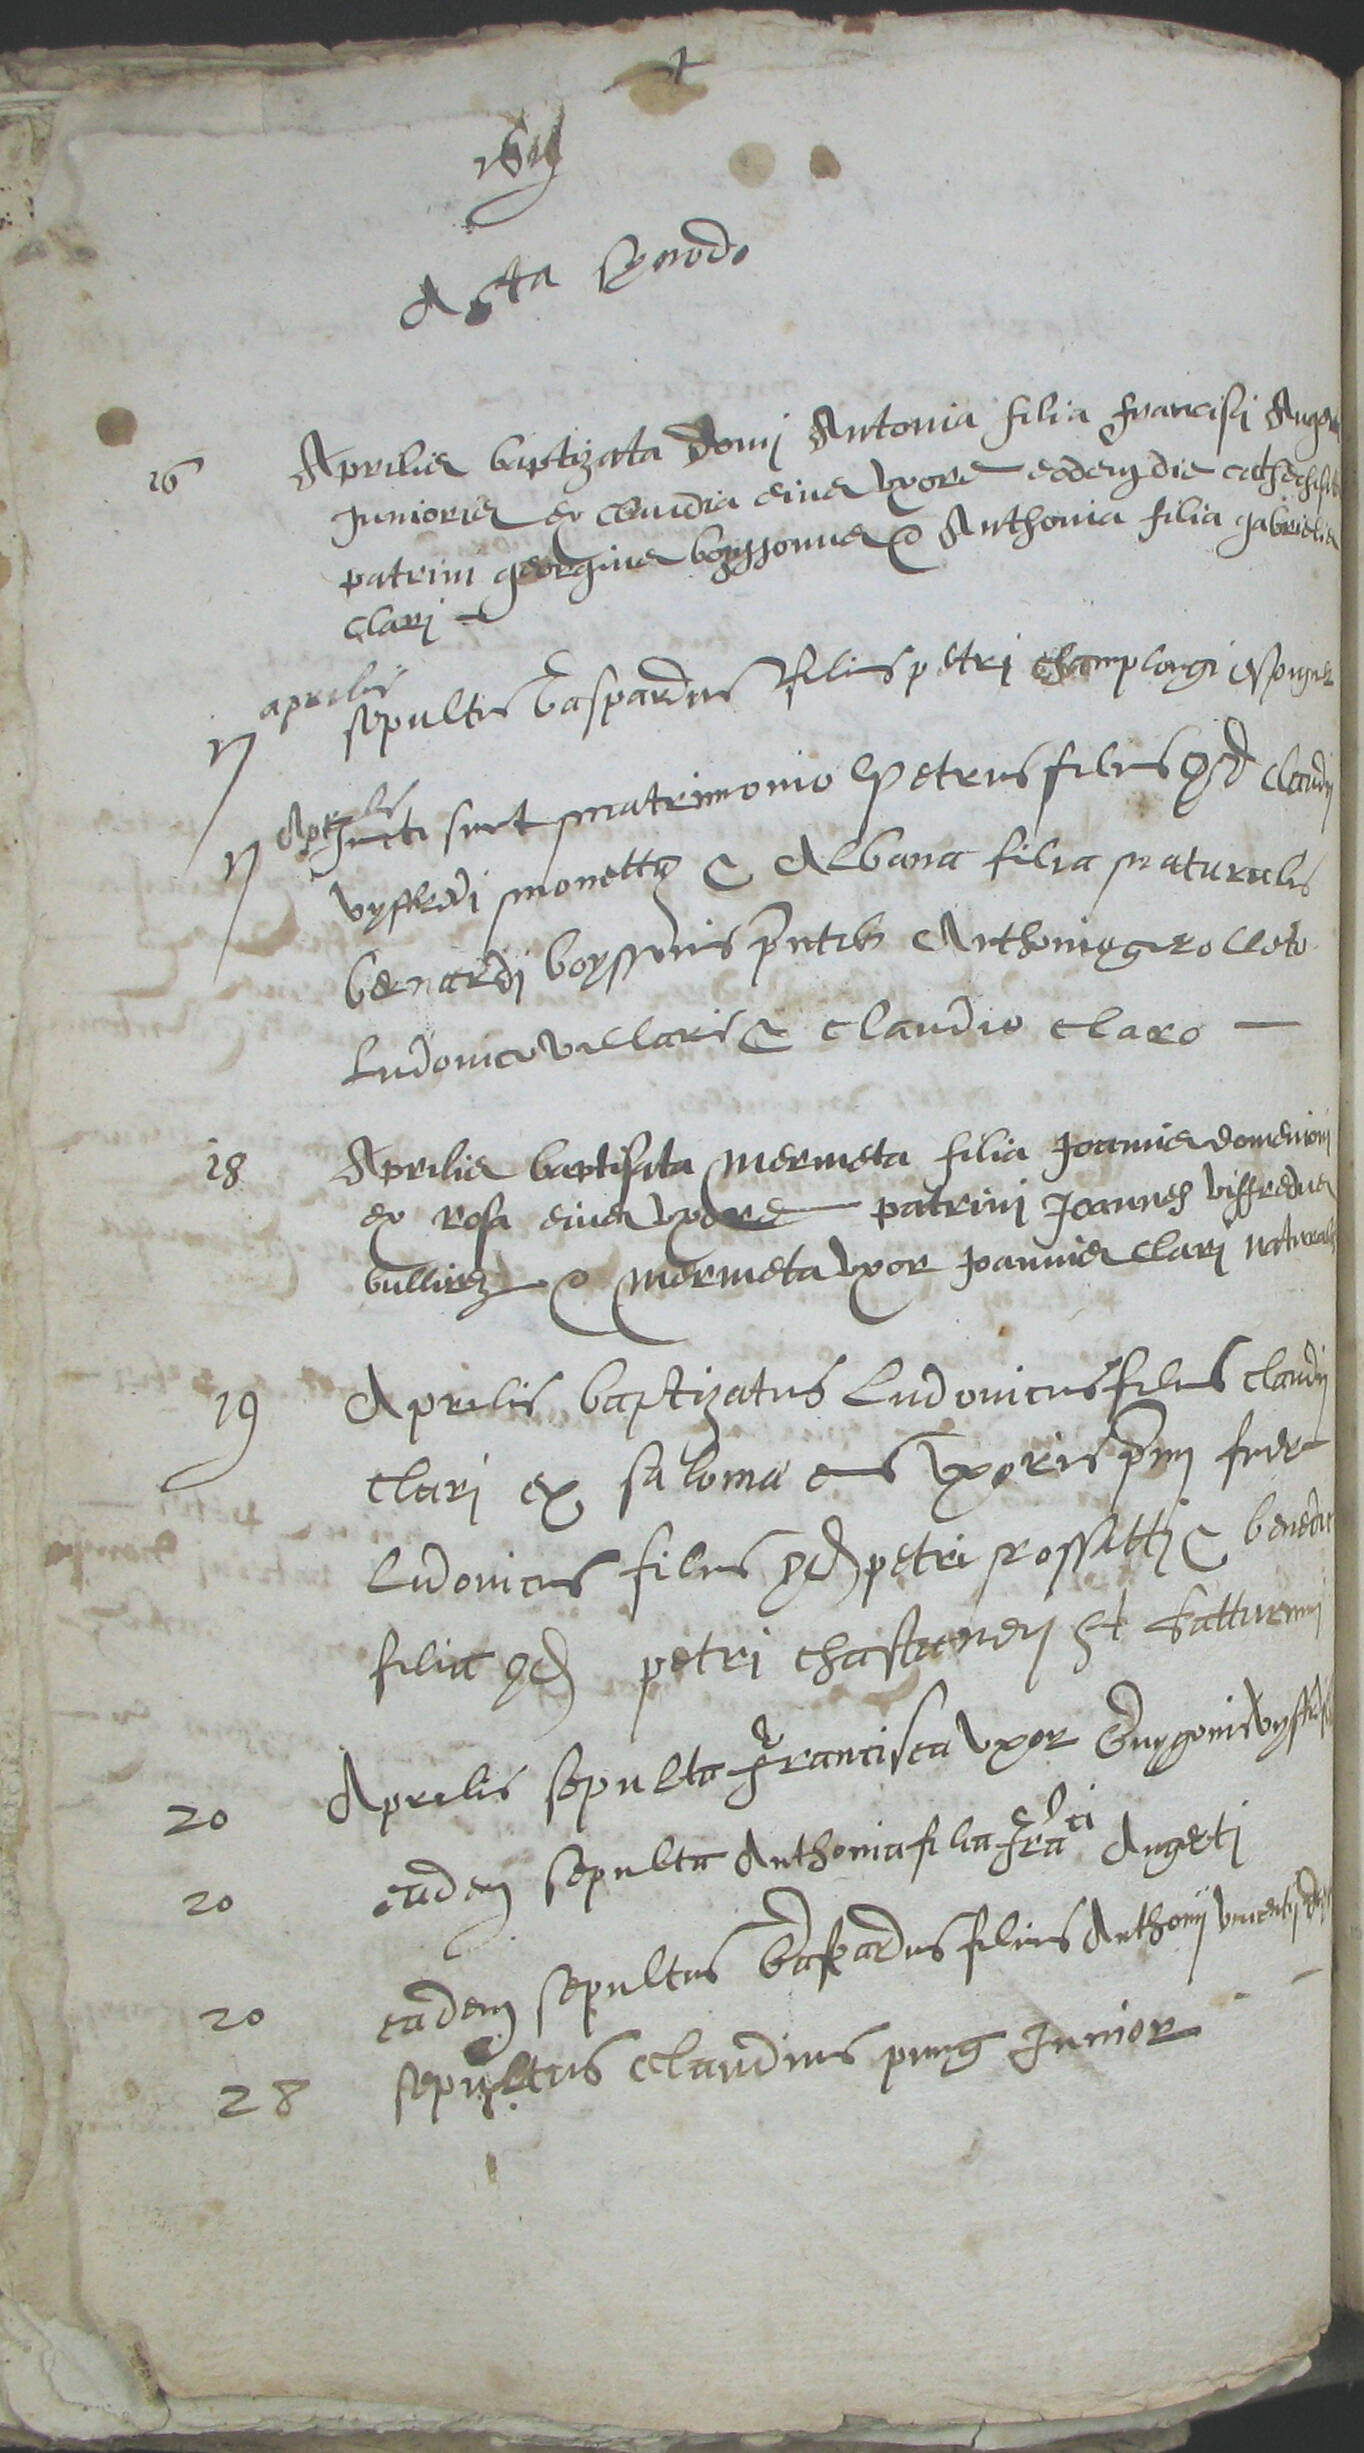 Acta synodo
16 Aprilis baptizata domj Antonia filia francisci
Junioris ex claudia eius uxore eodem die
patrini georgius boyssonus & Anthonia filia gabrielis
clarj
17 aprilis sepultus Gaspardus filius petri champlongi
17 Aprilis Juncti sunt matrimonio Petrus filius qd claudij
vyffredi monetti & Albana filia naturalis
bernardj boyssonis pntib Anthonio grolleto
Ludovico villaris & Claudio Claro
18 Aprilis baptisata mermeta filia Joannis domenionj
ex rosa eius uxore patrini Joannes viffredus
& mermeta uxor Joannis clarj naturalis
19 Aprilis baptizatus Ludovicus filius claudij
clarj ex saloma eius uxoris pnj fuer
Ludovicus filius qd petri rossettj &
filia qd petri chastanerij st Satturninj
20 Aprilis sepulta Francisca uxor Guygonis
20 eadem sepulta Anthonia filia Fraci Augertj
20 eadem sepultus Gaspardus filius Anthonij vincentij
28 sepultus Claudius Junior